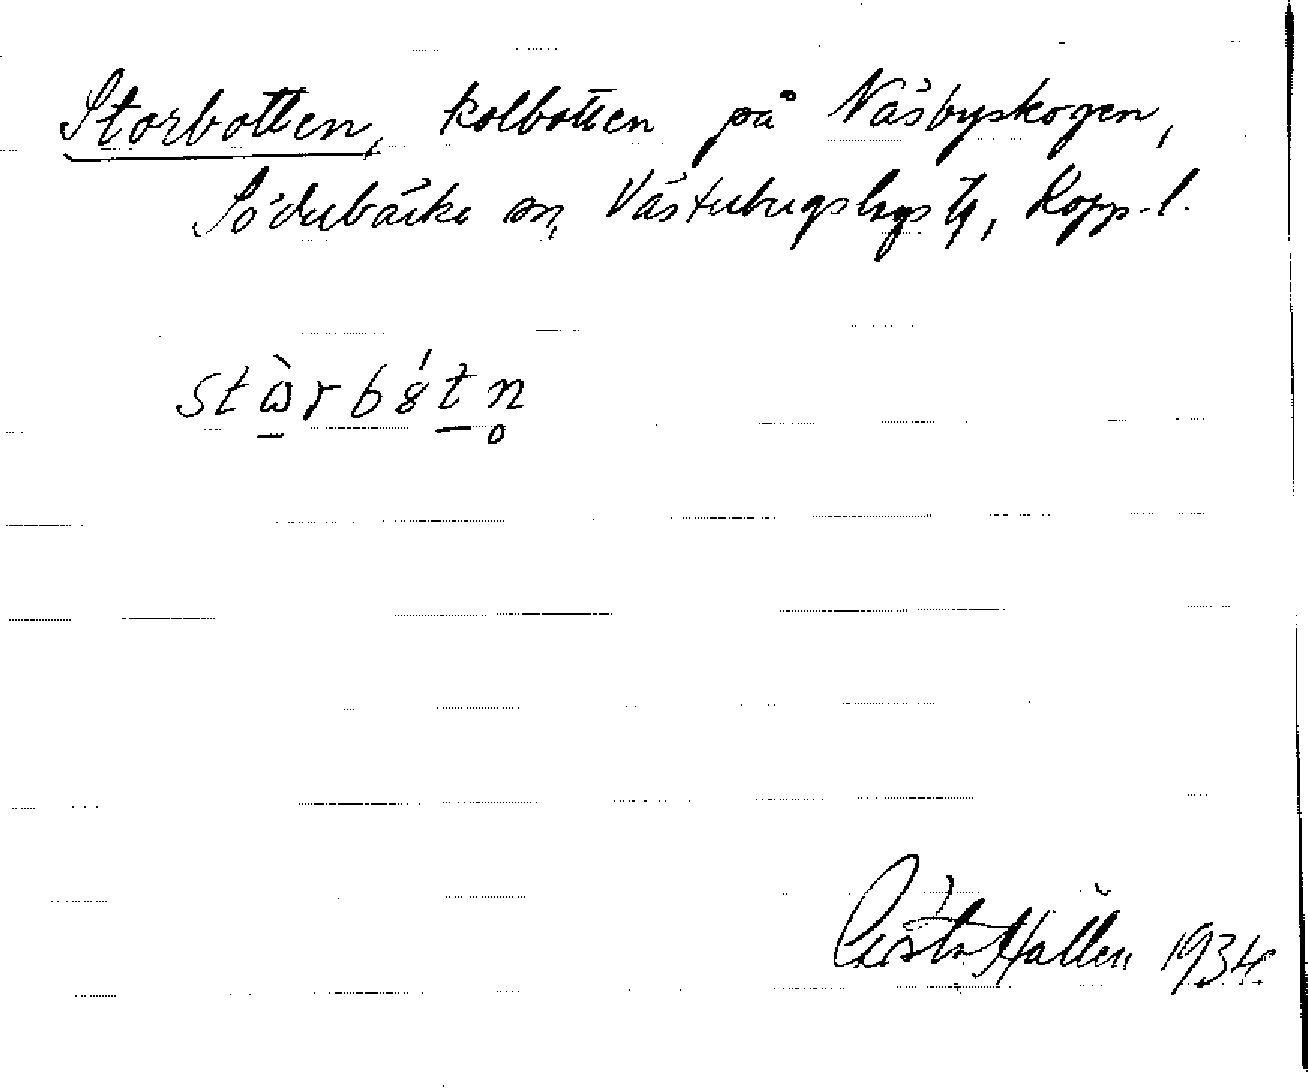 Storbotten, kolbotten på Näsbyskogen,
Söderbärke sn, Västerbergslags tg, Kopp. l.
stὼrbȣ́tn̥
Gösta Hallén 1934.